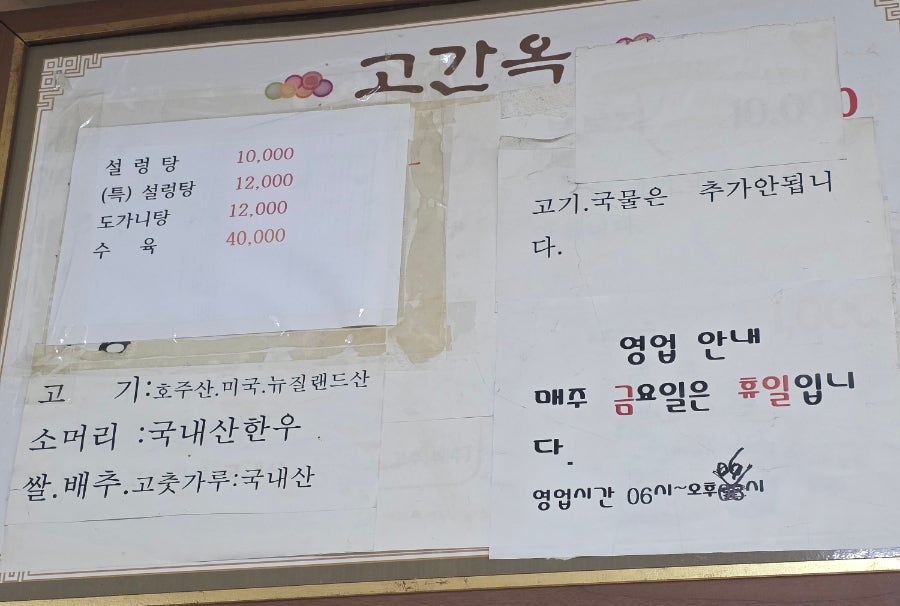 고간옥
설렁탕 10,000
(특) 설렁탕 12,000
도가니탕 12,000
수 육 40,000
고 기:호주산.미국.뉴질랜드산
소머리 :국내산한우
쌀.배추.고춧가루:국내산
고기.국물은 추가안됩니
다.
영업 안내
매주 금요일은 휴일입니
다.
영업시간 06시~오후06시